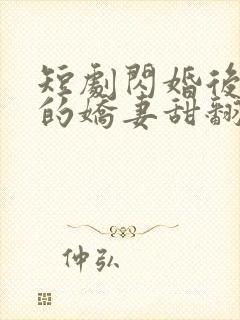 短劇閃婚後
的嬌妻甜翻
仲弘